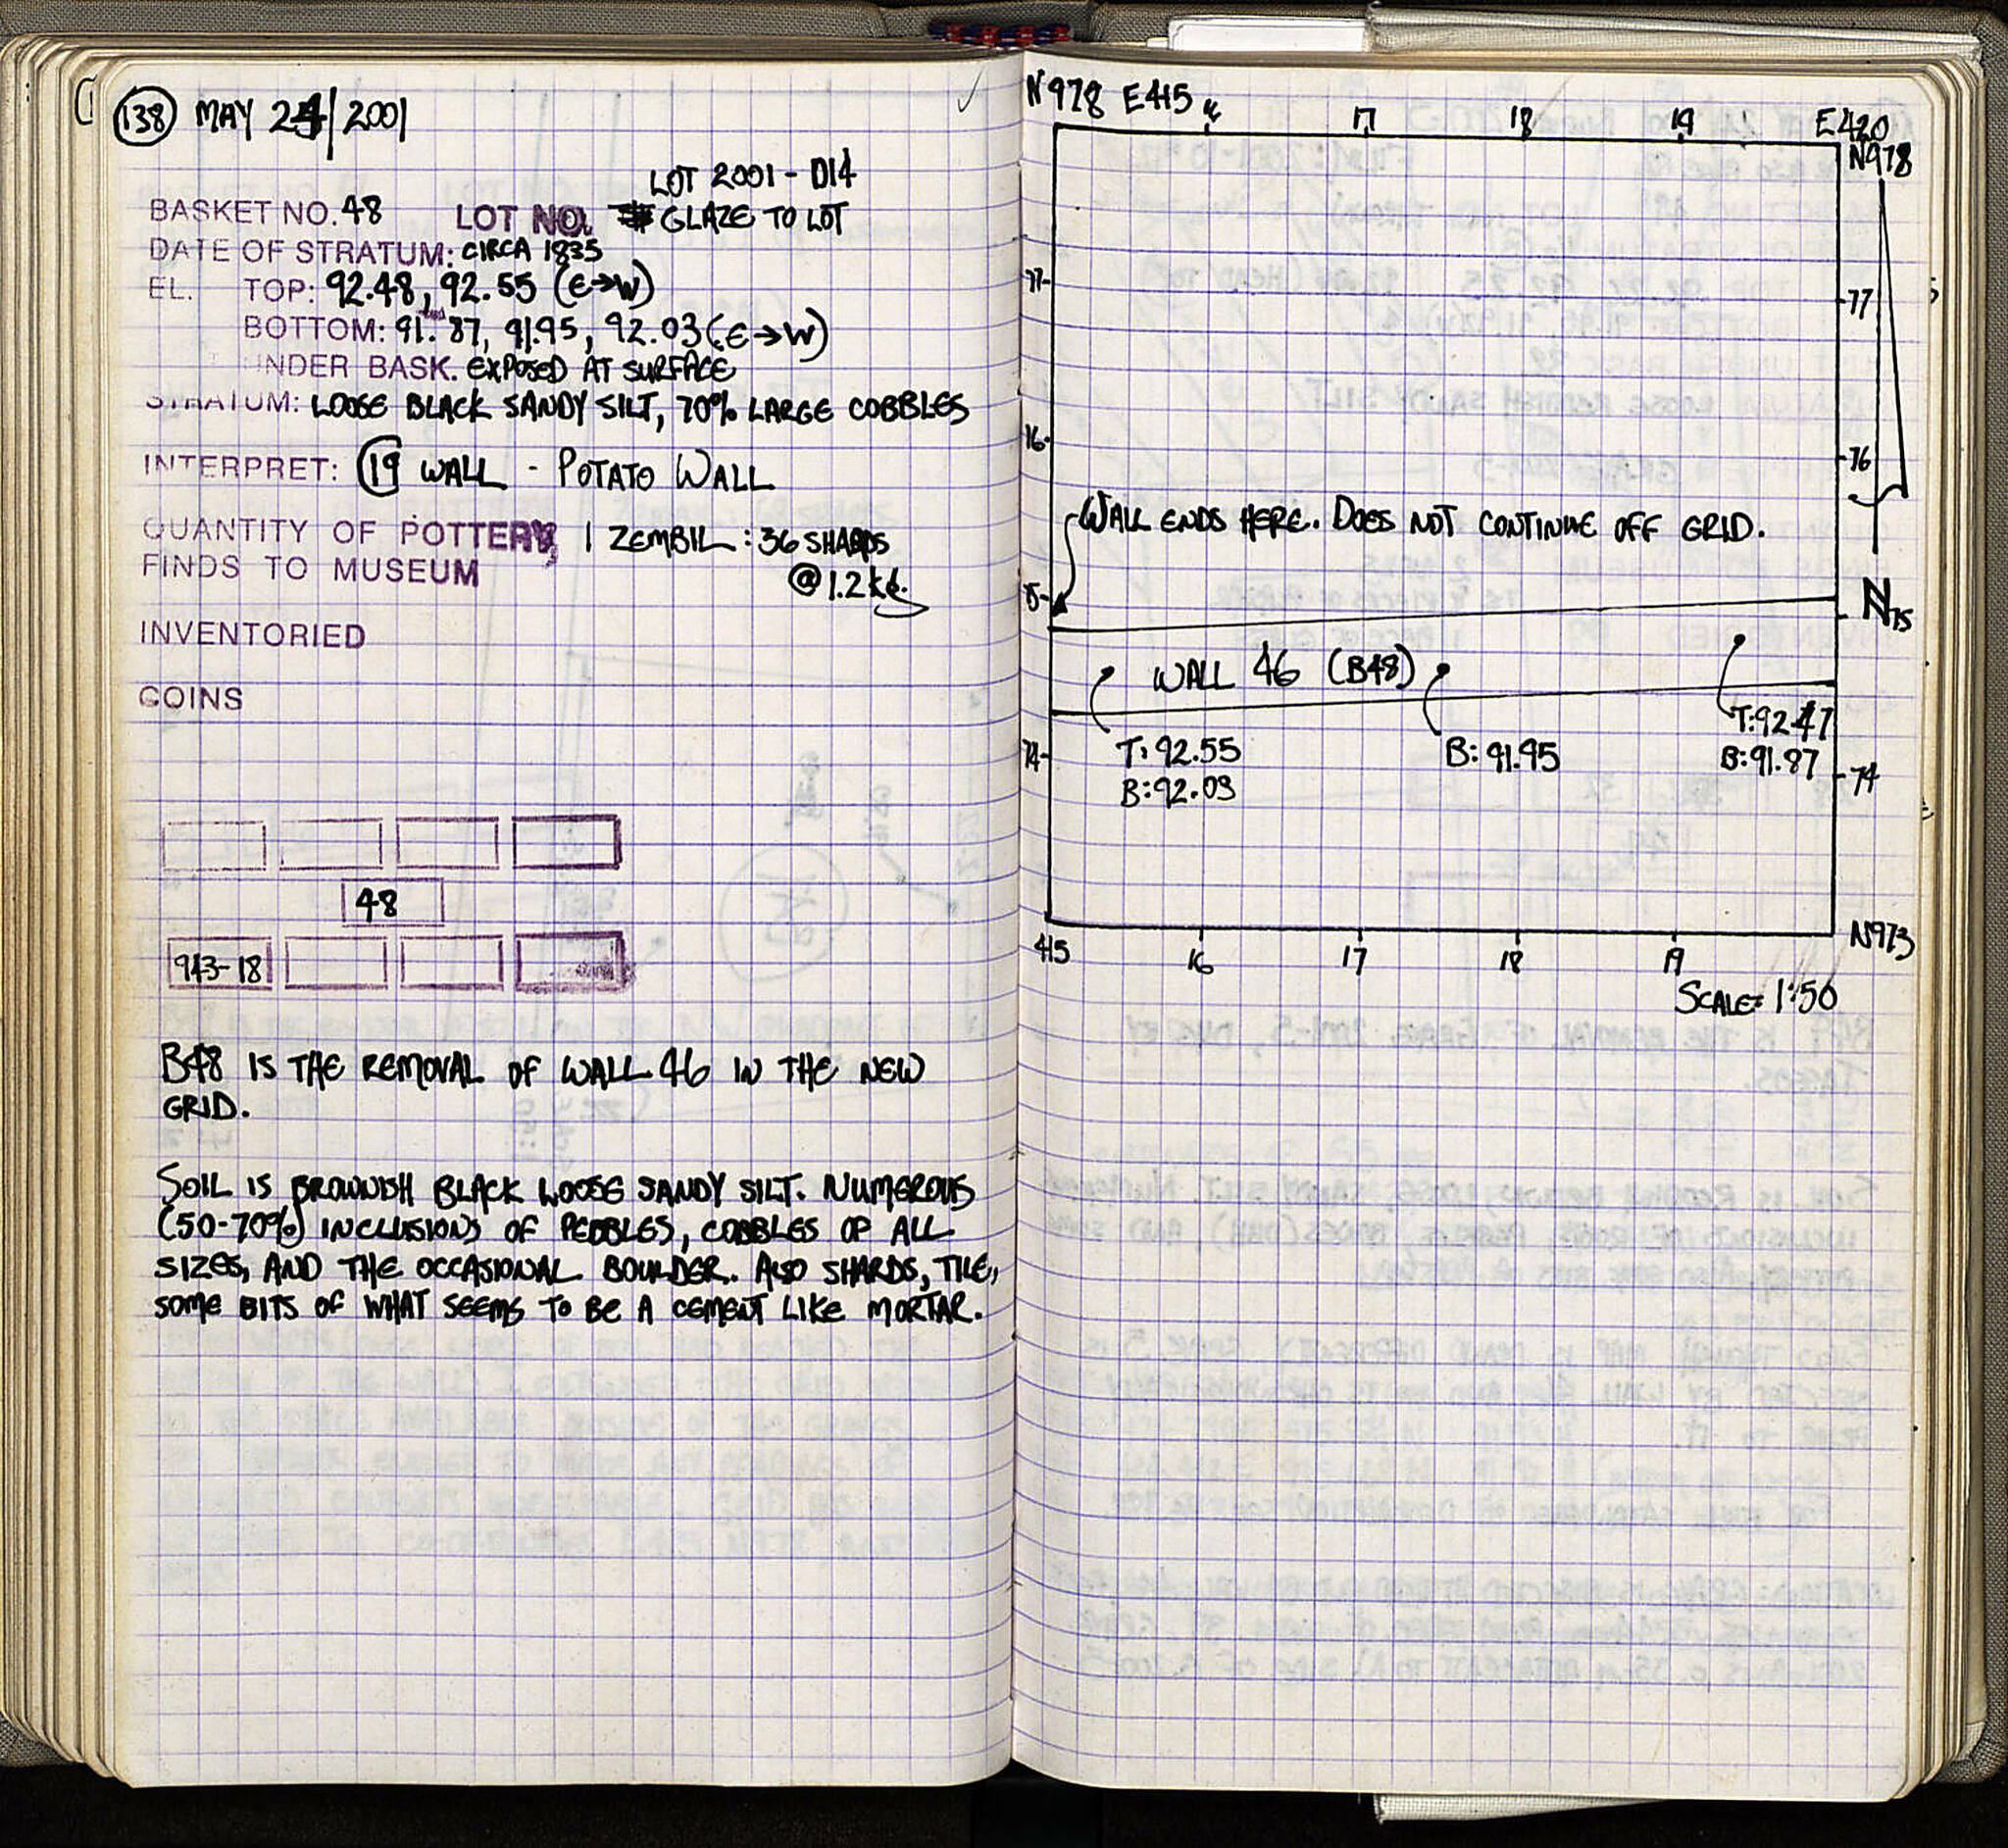 138 MAY 24/2001
LOT 2001-D14
BASKET NO. 48 LOT NO. GLAZE TO LOT
DATE OF STRATUM: CIRCA 1835
EL. TOP: 92.48, 92.55 (E→W)
BOTTOM: 91.87, 91.95, 92.03 (E→W)
UNDER BASK. EXPOSED AT SURFACE
STRATUM: LOOSE BLACK SANDY SILT, 70% LARGE COBBLES
INTERPRET: 19 WALL - POTATO WALL
QUANTITY OF POTTERY, 1 ZEMBIL: 36 SHARDS
FINDS TO MUSEUM @ 1.2 kg.
INVENTORIED
COINS
48
943-18
B48 IS THE REMOVAL OF WALL 46 IN THE NEW
GRID.
SOIL IS BROWNISH BLACK LOOSE SANDY SILT. NUMEROUS
(50-70%) INCLUSIONS OF PEBBLES, COBBLES OF ALL
SIZES, AND THE OCCASIONAL BOULDER. ALSO SHARDS, TILE,
SOME BITS OF WHAT SEEMS TO BE A CEMENT LIKE MORTAR.
N978 E415 16 17 18 19 E420
N978
77 77
76 76
WALL ENDS HERE. DOES NOT CONTINUE OFF GRID.
75 N 75
WALL 46 (B48)
T: 92.55 B: 91.95 T: 92.47
B: 92.03 B: 91.87
74 74
N973
415 16 17 18 19
SCALE= 1:50